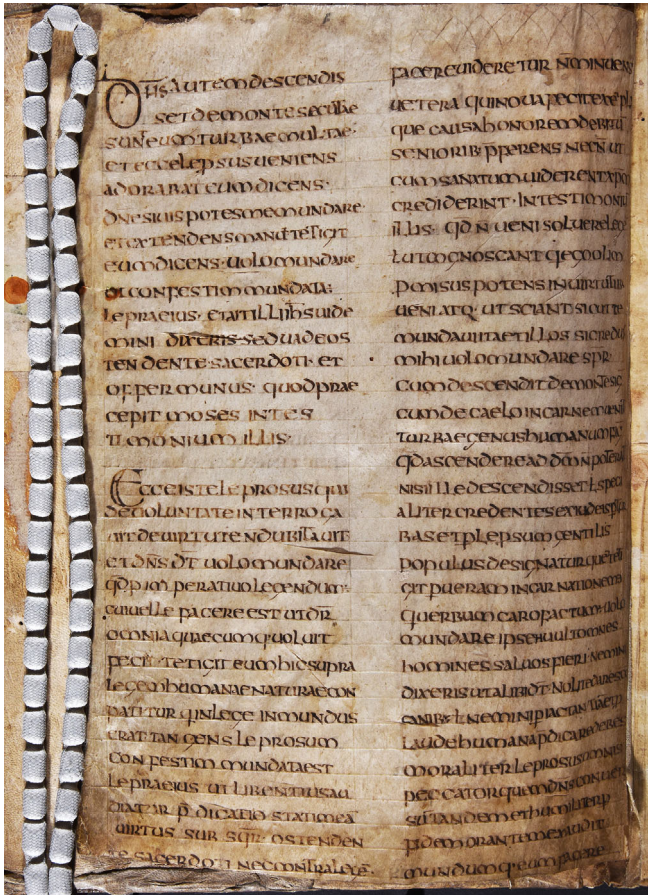 IHS AUTEM DESCENDIS
SET DE MONTE SECUTAE
SUNT EUM TURBAE MULTAE·
ET ECCE LEPSUS UENIENS
ADORABAT EUM DICENS·
DNE SI UIS POTES ME MUNDARE
ET EXTENDENS MANU TETIGIT
EUM DICENS· UOLO MUNDARE
ET CONFESTIM MUNDATA·
LEPRA EIUS· ET AIT ILLI IHS UIDE
MINI DIXERIS· SED UADE OS
TENDENTE· SACERDOTI· ET
OFFER MUNUS· QUOD PRAE
CEPIT MOSES IN TES
TIMONIUM ILLIS·
ECCE ISTE LEPROSUS QUI
DE UOLUNTATE INTERROGA
UIT DE UIRTUTE N DUBITAUIT
ET DNS DT UOLO MUNDARE
QD P IMPERATIUO LEGENDUM·
CUI UELLE FACERE EST UT DR
OMNIA QUAECUMQ· UOLUIT
FECIT· TETIGIT EUM HIC SUPRA
LEGEM HUMANAE NATURAE CON
PATITUR Q IN LEGE INMUNDUS
ERAT TANGENS LEPROSUM
CONFESTIM MUNDATA EST
LEPRA EIUS UT LIBENTIUS AU
DIATUR P DICATIO STATIM EA
UIRTUS SUB OSTENDEN
TE SACERDOTI NE CONTRA LEGE·
FACERE UIDERETUR N MINUENS
UETERA QUI NOUA FECIT
QUE CAUSA HONOREM DEBITU
SENIORIB· P FERENS NEC N UT
CUM SANATUM UIDERENT
CREDIDERINT· IN TESTIMONIU
ILLIS· QD N UENI SOLUERE LEGE
UT COGNOSCANT
POTENS IN UIRTUTIB
UENI ATQ· UT SCIANT SICUT TE
MUNDAUI TA ET ILLOS SI CREDU
MIHI UOLO MUNDARE SPR·
CUM DESCENDIT DE MONTE SIC
CUM DE CAELO IN CARNEM UENIT
TURBAE GENUS HUMANUM
QD ASCENDERE AD DM N POTERAT
NISI ILLE DESCENDISSET
ALITER CREDENTES EX IUDEIS
BAS ET P LEPSUM GENTILIS
POPULUS DESIGNATUR QUE
GIT PUERAM INCARNATIONEM
Q UERBUM CARO FACTUM· UOLO
MUNDARE IPSE UULT OMNES
HOMINES SALUOS FIERI· NEMINI
DIXERIS UT ALIBI DT· NOLITE
CANIB· NE MINI
LAUDE HUMANA
MORALITER LEPROSUS OMNIS
PECCATOR QUEM DNS CONUER
ET HUMILITER P
FIDEM ORANTEM EXAUDIT
MUNDUMQ· EUM FACERE